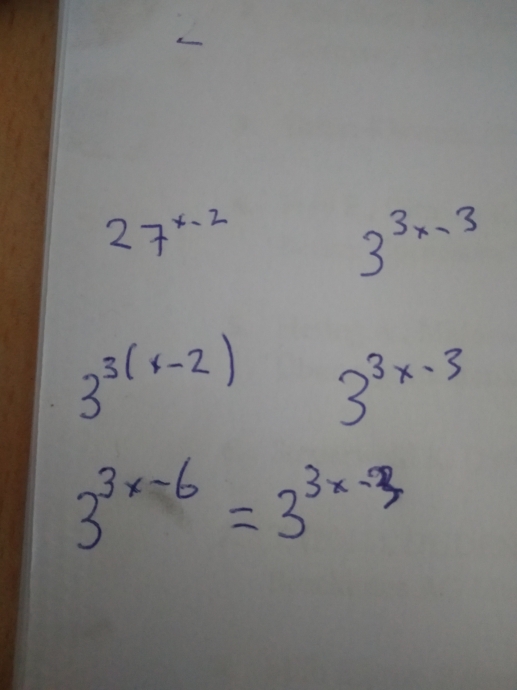 27^{x-2} 3^{3x-3}
3^{3(x-2)} 3^{3x-3}
3^{3x-6} = 3^{3x-3}